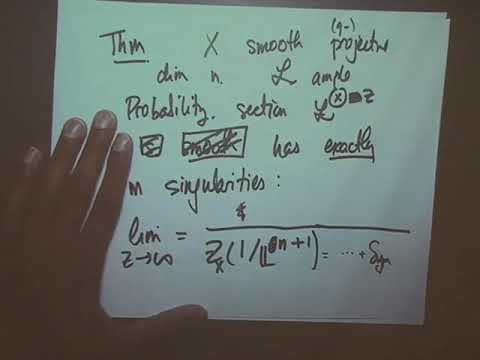 Thm X smooth (q-) projective
dim n. L ample
Probability. section L^{⊗ z}
is smooth has exactly
m singularities:
lim z→∞ = / Z_X(1/𝕃^{n+1}) = ... + Sym